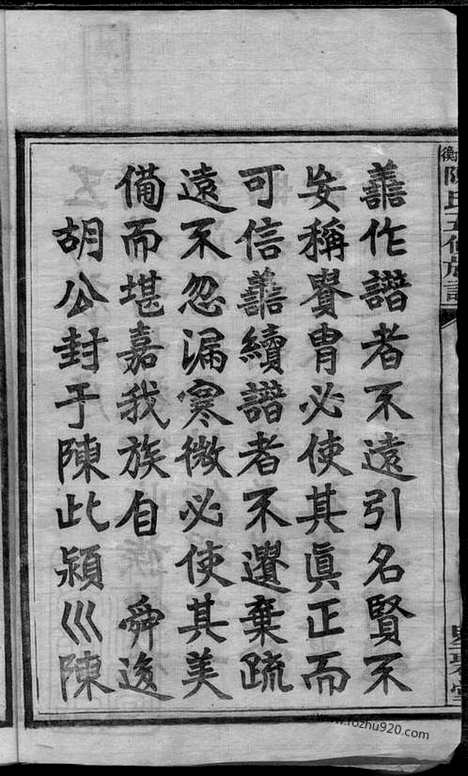 衡陳氏五修族譜
星聚堂
譱作譜者不遠引名賢不
妄稱貴胄必使其眞正而
可信譱續譜者不遺棄疏
遠不忽漏寒微必使其美
備而堪嘉我族自 舜後
胡公封于陳此潁巛陳
www.rozhu920.com